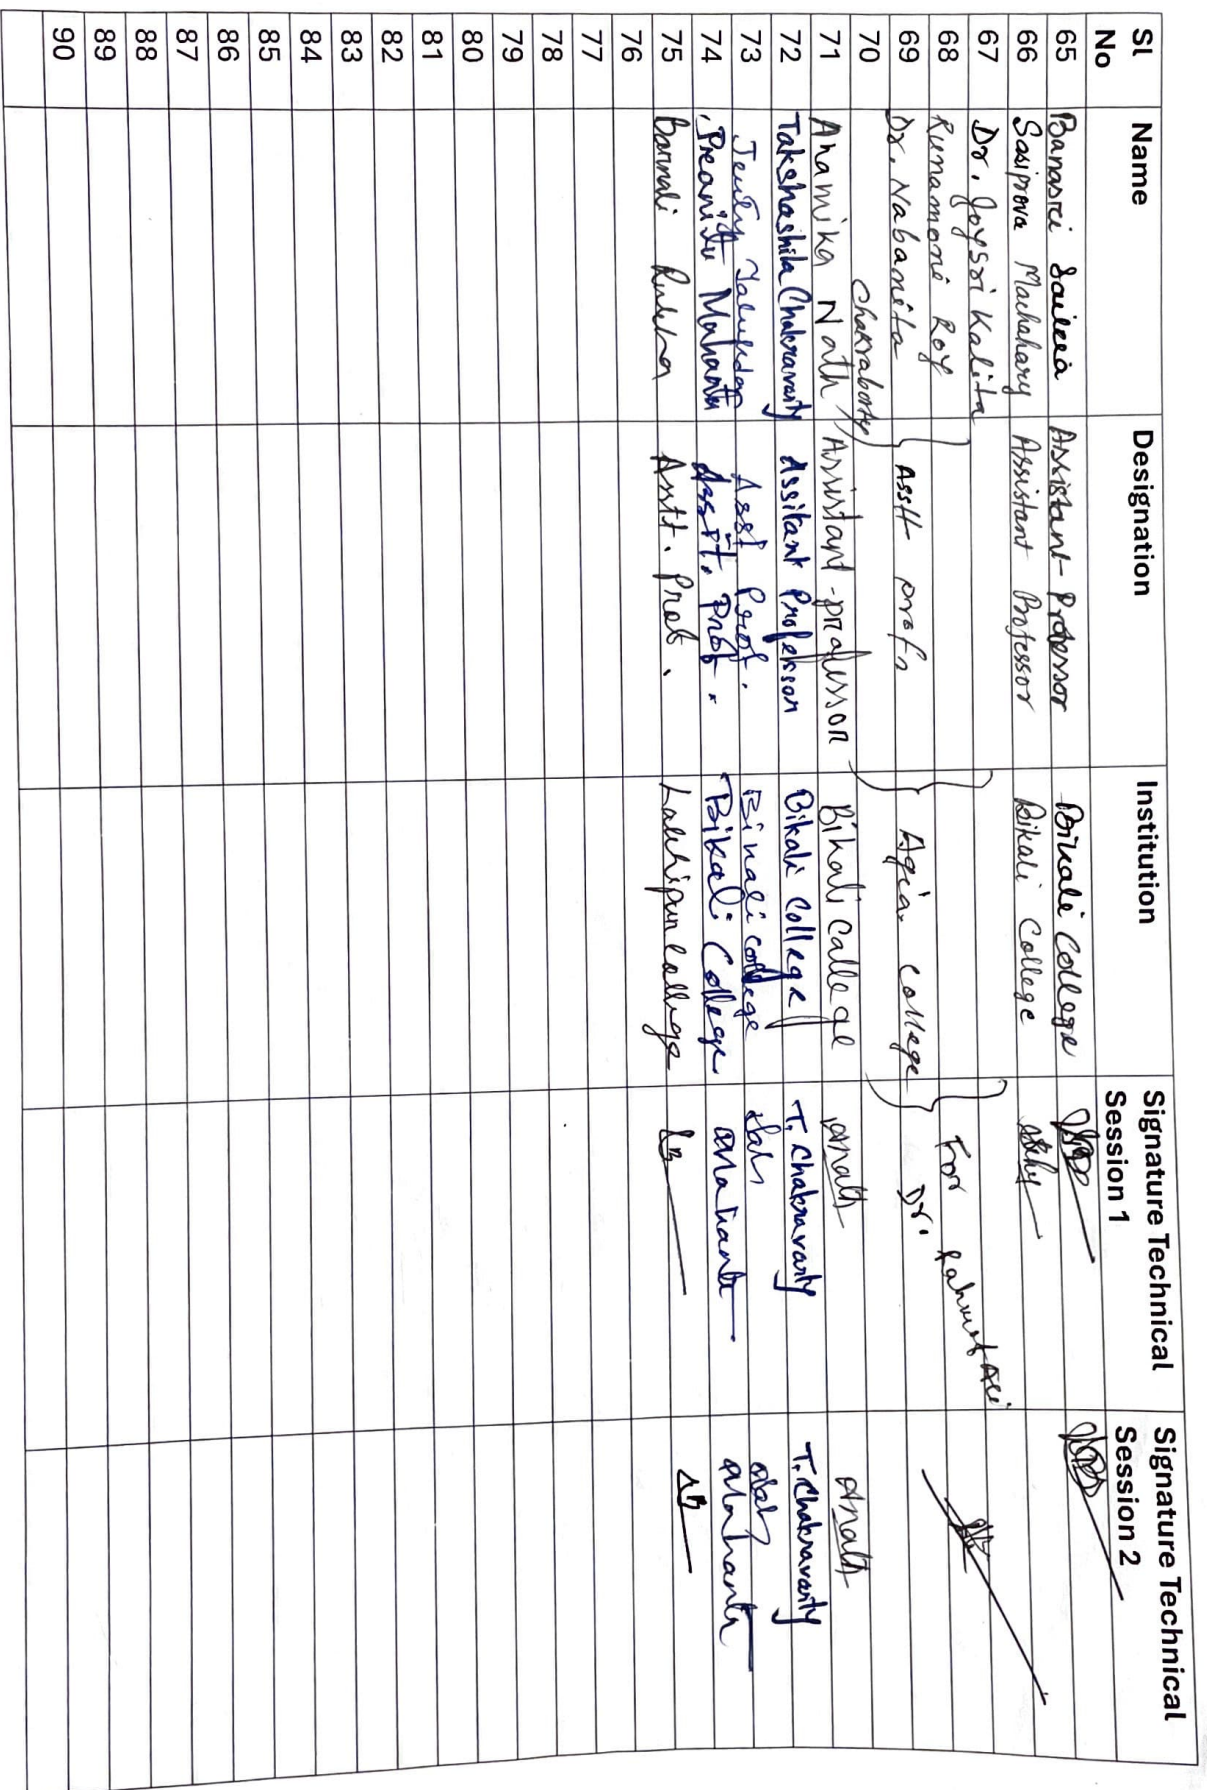 Sl No Name Designation Institution Signature Technical Session 1 Signature Technical Session 2
65 Banasri Saikia Assistant Professor Bikali College
66 Sasiprova Machahary Assistant Professor Bikali College
67 Dr. Joysri Kalita
68 Runamoni Roy For
69 Dr. Nabanita Asstt profs Agia College Dr.
70 Chakraborty
71 Anamika Nath Assistant professor Bikali College Anath Anath
72 Takshashila Chakravarty Assitant Professor Bikali College T. Chakravarty T. Chakravarty
73 Talukdar Asst Prof. college
74 Mahanta Asstt. Prof. Bikali College
75 Barnali Asstt. Prof. Lakhipur College
76
77
78
79
80
81
82
83
84
85
86
87
88
89
90